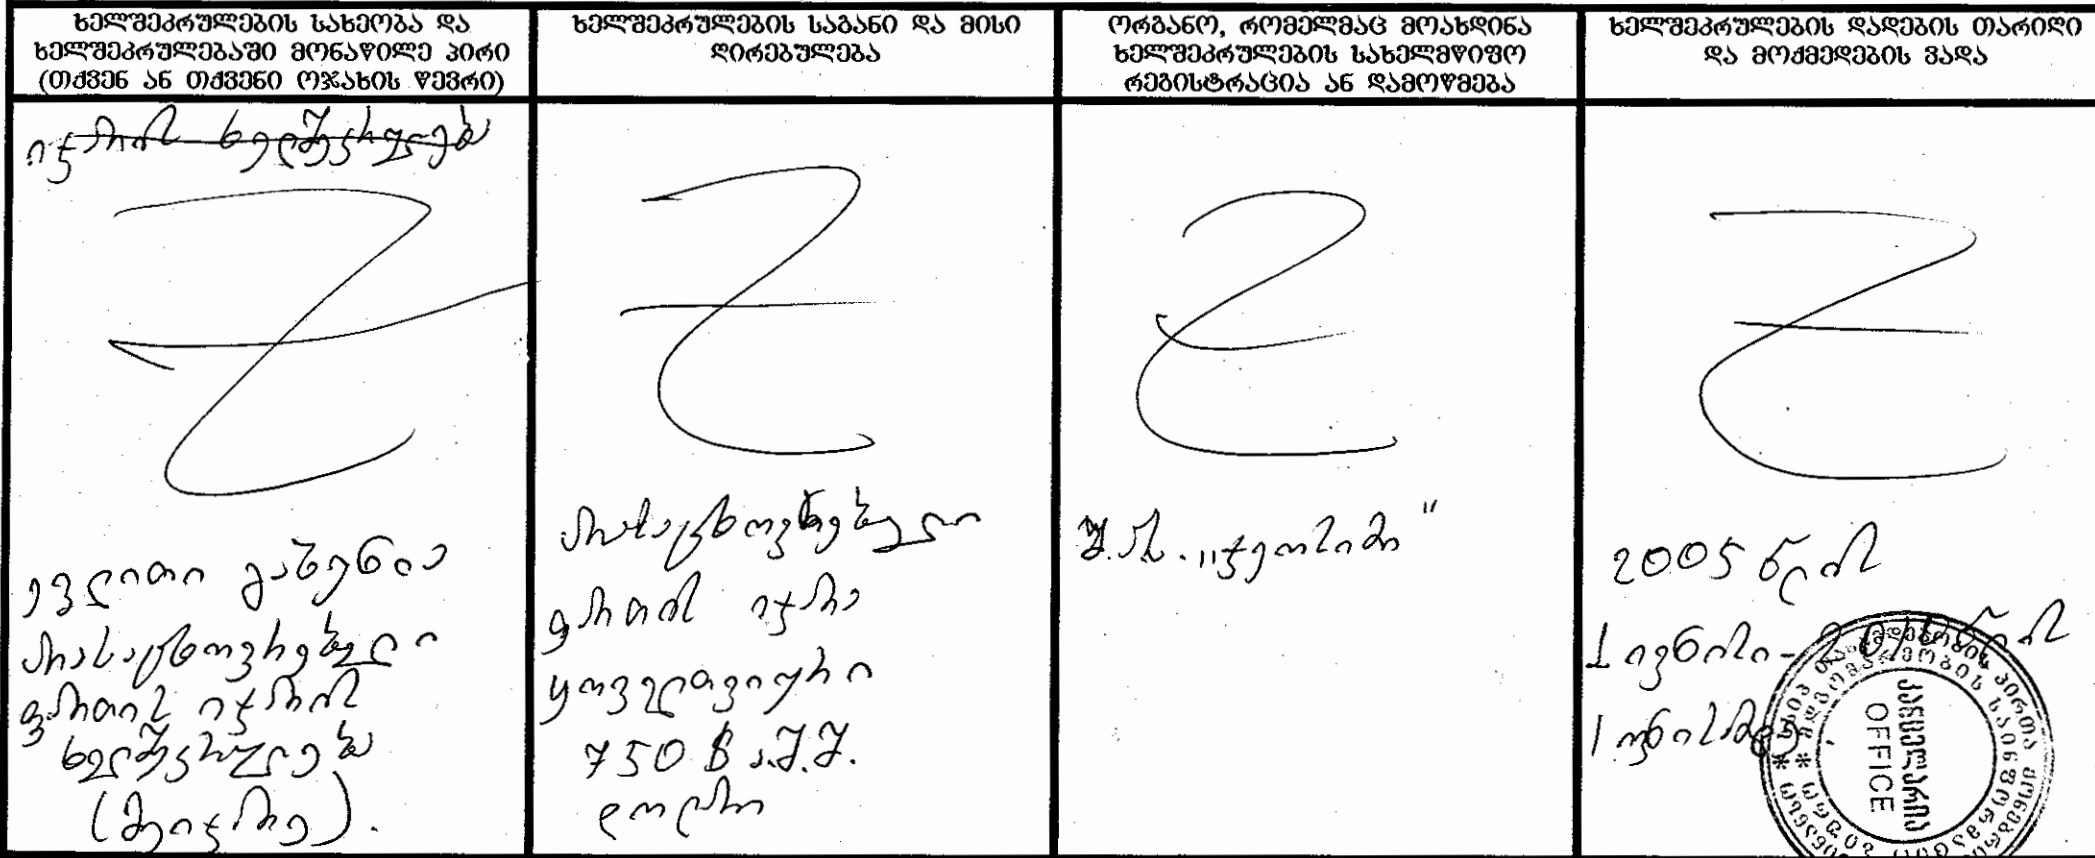 ხელშეკრულების სახეობა და
ხელშეკრულებაში მონაწილე პირი
(თქვენ ან თქვენი ოჯახის წევრი)
ხელშეკრულების საგანი და მისი
ღირებულება
ორგანო, რომელმაც მოახდინა
ხელშეკრულების სახელმწიფო
რეგისტრაცია ან დამოწმება
ხელშეკრულების დადების თარიღი
და მოქმედების ვადა
იჯარის ხელშეკრულება
არასაცხოვრებელი
ფართის იჯარის
ხელშეკრულება
(მეიჯარე).
არასაცხოვრებელი
ფართის იჯარა
ყოველთვიური
750 $ ა.შ.შ.
დოლარი
2005 წლის
1 ივნისი-
კანცელარია
OFFICE